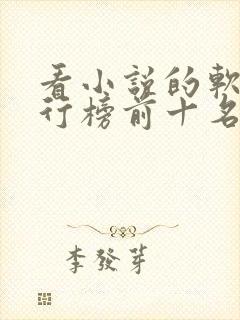 看小説的軟
行榜前十名
李發芽